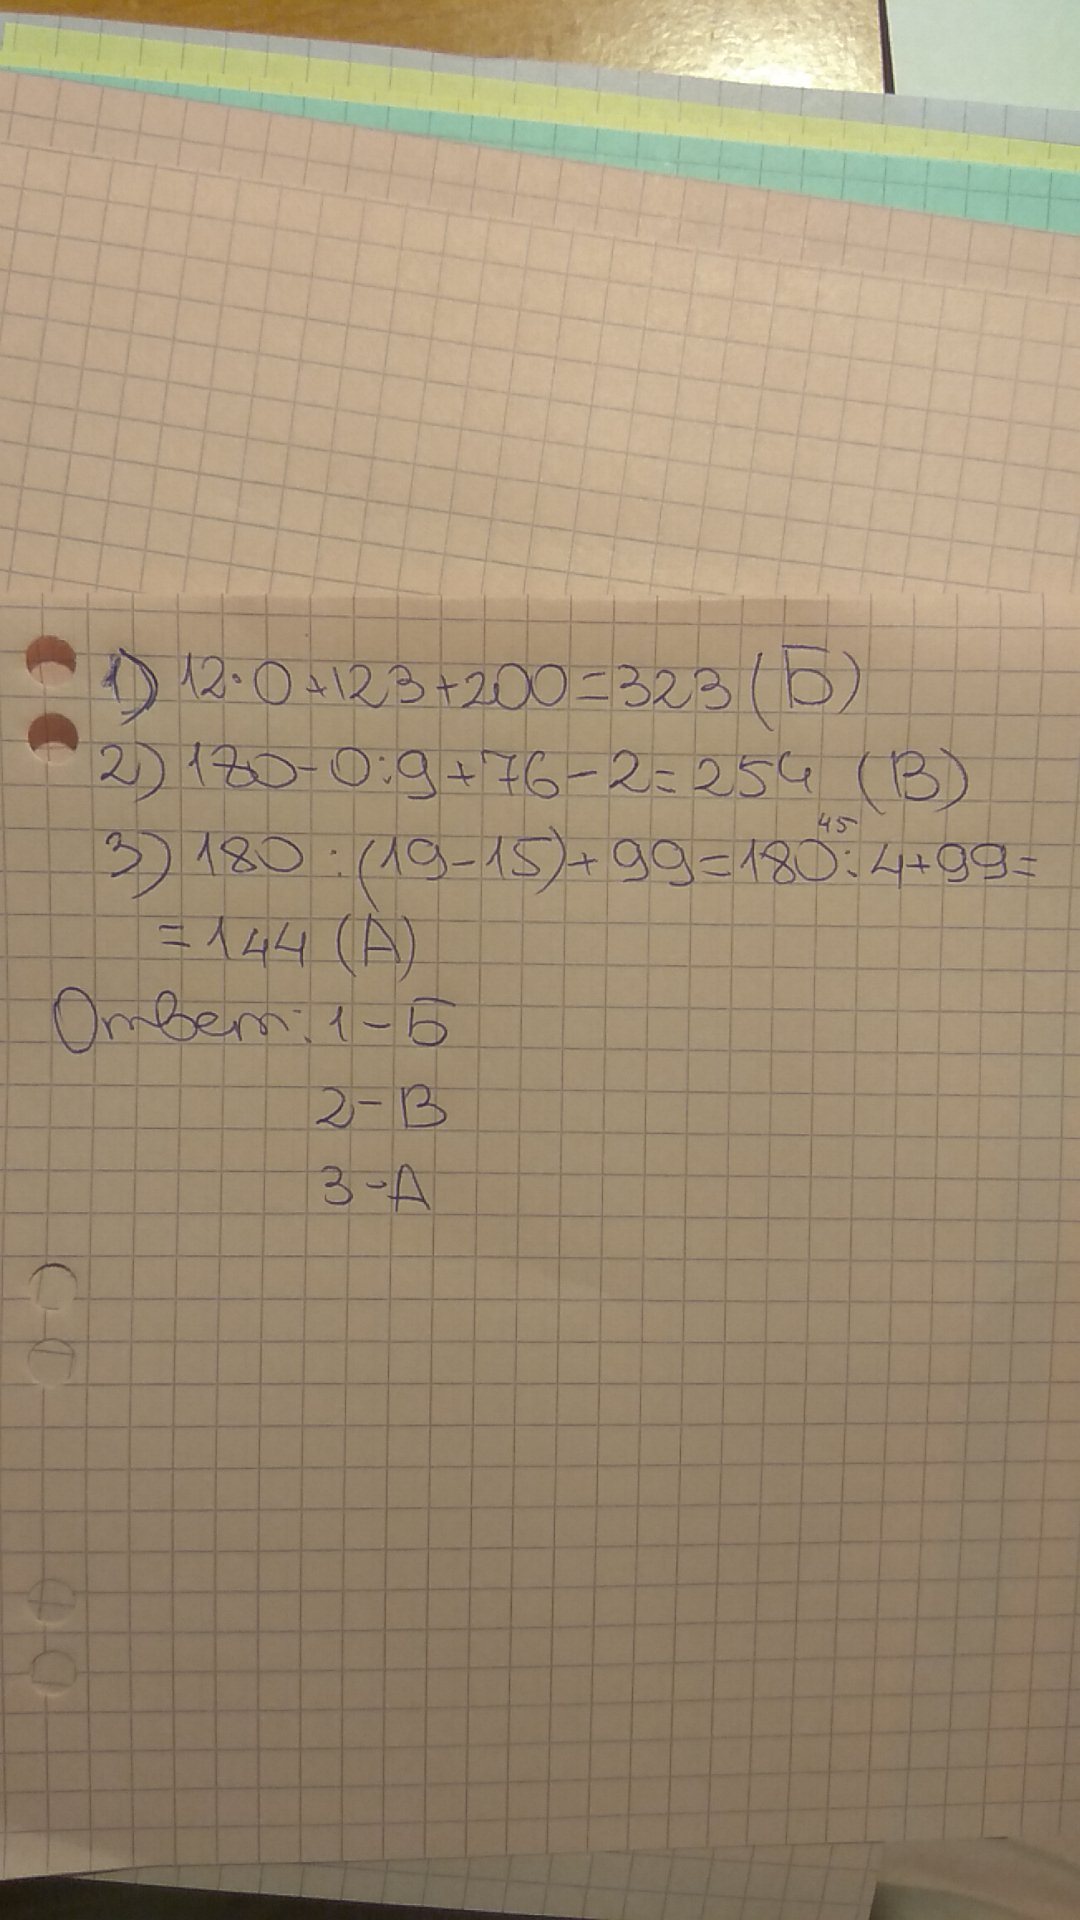 1) 12·0+123+200=323 (Б)
2) 180-0:9+76-2=254 (В)
45
3) 180:(19-15)+99=180:4+99=
=144 (А)
Ответ: 1-Б
2-В
3-А